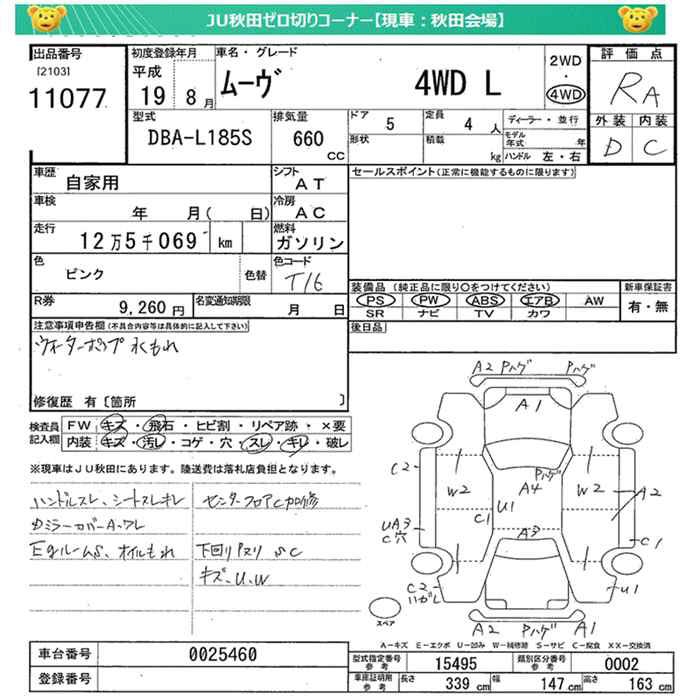 JU秋田ゼロ切りコーナー【現車：秋田会場】
出品番号
[2103]
11077
初度登録年月
平成
19 8月
車名・グレード
ムーヴ 4WD L
2WD
・
4WD
評価点
RA
外装 内装
D C
型式
DBA-L185S
排気量
660
CC
ドア
5
定員
4 人
形状
積載
kg
ディーラー・並行
モデル年式 年
ハンドル 左・右
車歴
自家用
シフト
AT
車検
年 月( 日)
冷房
AC
走行
12万5千069 km
燃料
ガソリン
色
ピンク
色替
色コード
T16
R券
9,260円
名変通知期限
月 日
セールスポイント(正常に機能するものに限ります)
装備品(純正品に限り○をつけてください)
新車保証書
PS PW ABS エアB AW
SR ナビ TV カワ
有・無
後日品
注意事項申告欄(不具合内容等は具体的に記入して下さい)
ウォーターポンプ水もれ
修復歴 有〔箇所 〕
検査員記入欄
FW キズ・飛石・ヒビ割・リペア跡・×要
内装 キズ・汚レ・コゲ・穴・スレ・キレ・破レ
※現車はJU秋田にあります。陸送費は落札店負担となります。
ハンドルスレ、シートスレキレ
センターフロアC加修
ミラーカバーA・ワレ
Egルーム S、オイルもれ
下回り S C
キズ・U・W
A2 Pハゲ Pハゲ
A1
C2
W2
Pハゲ
A4
U1
C1
W2
A2
UA3
C穴
A3
C1
C2
ハガレ
U1
スペア
A2 Pハゲ A1
A－キズ E－エクボ U－凹み W－補修跡 S－サビ C－腐食 XX－交換済
車台番号
0025460
登録番号
型式指定番号
参考
15495
類別区分番号
参考
0002
車庫証明用
参考
長さ
339 cm
幅
147 cm
高さ
163 cm